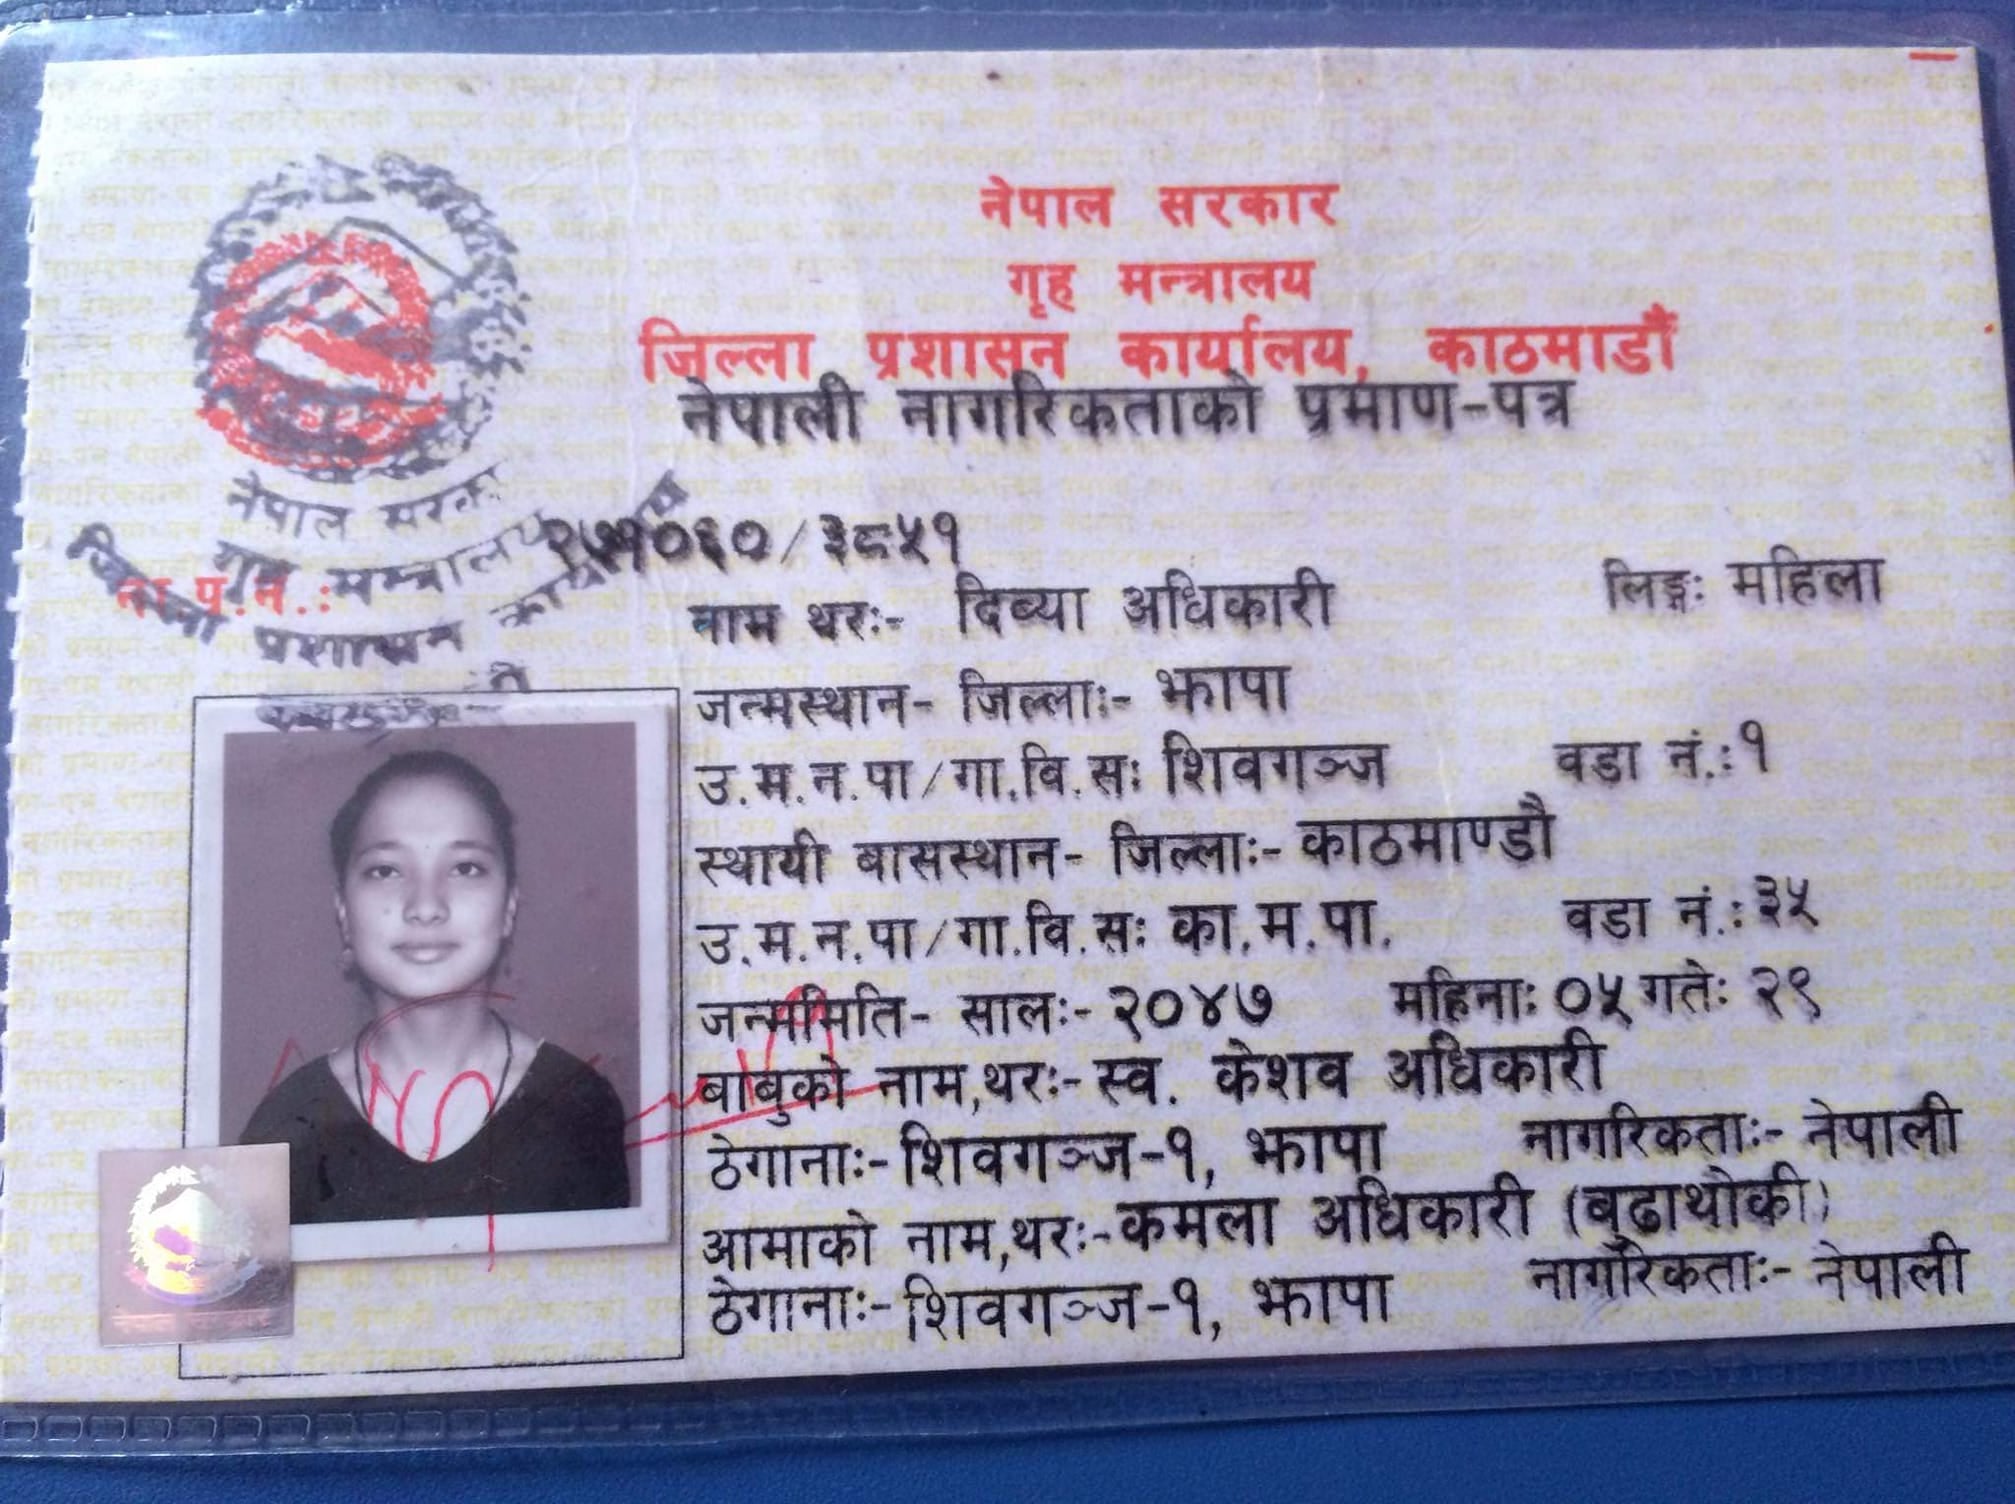 नेपाल सरकार
गृह मन्त्रालय
जिल्ला प्रशासन कार्यालय, काठमाडौं
नेपाली नागरिकताको प्रमाण-पत्र
नेपाल सरकार
गृह मन्त्रालय
जिल्ला प्रशासन कार्यालय
ना.प्र.नं.: २७१०६०/३८५१
नाम थरः- दिव्या अधिकारी लिङ्गः महिला
जन्मस्थान- जिल्लाः- झापा
उ.म.न.पा/गा.वि.सः शिवगञ्ज वडा नं.: १
स्थायी बासस्थान- जिल्लाः- काठमाण्डौ
उ.म.न.पा/गा.वि.सः का.म.पा. वडा नं.: ३५
जन्ममिति- सालः- २०४७ महिनाः ०५ गतेः २९
बाबुको नाम,थरः- स्व. केशव अधिकारी
ठेगानाः- शिवगञ्ज-१, झापा नागरिकताः- नेपाली
आमाको नाम,थरः- कमला अधिकारी (बुढाथोकी)
ठेगानाः- शिवगञ्ज-१, झापा नागरिकताः- नेपाली